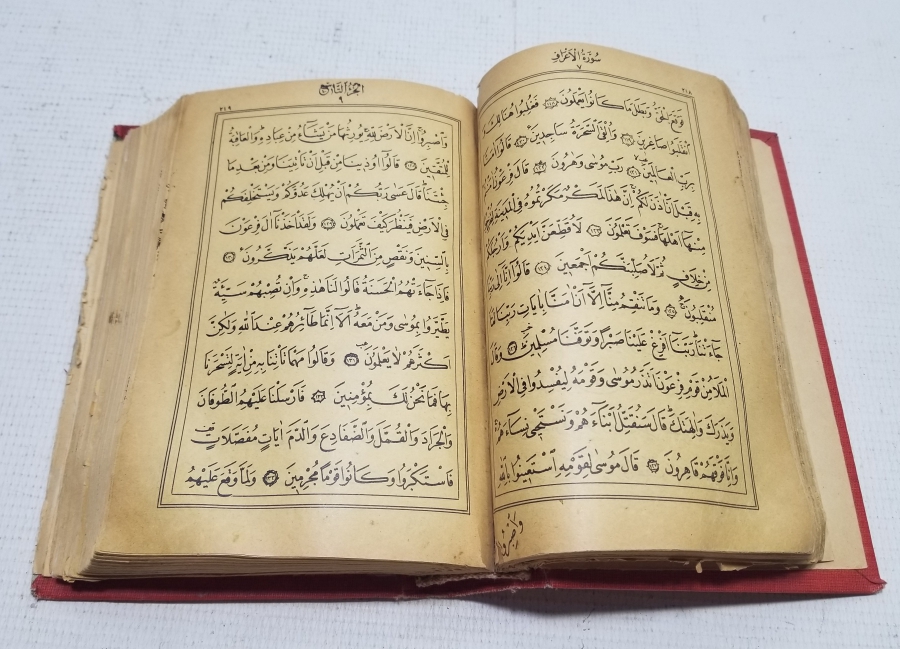 سُورَةُ الْاَعْرَافِ
٧
٢١٨
فَوَقَعَ الْحَقُّ وَبَطَلَ مَا كَانُوا يَعْمَلُونَ ١١٨ فَغُلِبُوا هُنَالِكَ
انْقَلَبُوا صَاغِرِينَ ١١٩ وَاُلْقِيَ السَّحَرَةُ سَاجِدِينَ ١٢٠ قَالُوا اٰمَنَّا
بِرَبِّ الْعَالَمِينَ ١٢١ رَبِّ مُوسٰى وَهٰرُونَ ١٢٢ قَالَ فِرْعَوْنُ
بِهِ قَبْلَ اَنْ اٰذَنَ لَكُمْ اِنَّ هٰذَا لَمَكْرٌ مَكَرْتُمُوهُ فِي الْمَدِينَةِ
مِنْهَا اَهْلَهَا فَسَوْفَ تَعْلَمُونَ ١٢٣ لَاُقَطِّعَنَّ اَيْدِيَكُمْ وَاَرْجُلَكُمْ
مِنْ خِلَافٍ ثُمَّ لَاُصَلِّبَنَّكُمْ اَجْمَعِينَ ١٢٤ قَالُوا اِنَّا اِلٰى رَبِّنَا
مُنْقَلِبُونَ ١٢٥ وَمَا تَنْقِمُ مِنَّا اِلَّا اَنْ اٰمَنَّا بِاٰيَاتِ رَبِّنَا لَمَّا
جَاءَتْنَا رَبَّنَا اَفْرِغْ عَلَيْنَا صَبْرًا وَتَوَفَّنَا مُسْلِمِينَ ١٢٦ وَقَالَ
الْمَلَاُ مِنْ قَوْمِ فِرْعَوْنَ اَتَذَرُ مُوسٰى وَقَوْمَهُ لِيُفْسِدُوا فِي الْاَرْضِ
وَيَذَرَكَ وَاٰلِهَتَكَ قَالَ سَنُقَتِّلُ اَبْنَاءَهُمْ وَنَسْتَحْيِي نِسَاءَهُمْ
وَاِنَّا فَوْقَهُمْ قَاهِرُونَ ١٢٧ قَالَ مُوسٰى لِقَوْمِهِ اسْتَعِينُوا بِاللّٰهِ
وَاصْبِرُوا
اَلْجُزْءُ التَّاسِعُ
٩
٢١٩
وَاصْبِرُوا اِنَّ الْاَرْضَ لِلّٰهِ يُورِثُهَا مَنْ يَشَاءُ مِنْ عِبَادِهِ وَالْعَاقِبَةُ
لِلْمُتَّقِينَ ١٢٨ قَالُوا اُوذِينَا مِنْ قَبْلِ اَنْ تَاْتِيَنَا وَمِنْ بَعْدِ مَا
جِئْتَنَا قَالَ عَسٰى رَبُّكُمْ اَنْ يُهْلِكَ عَدُوَّكُمْ وَيَسْتَخْلِفَكُمْ
فِي الْاَرْضِ فَيَنْظُرَ كَيْفَ تَعْمَلُونَ ١٢٩ وَلَقَدْ اَخَذْنَا اٰلَ فِرْعَوْنَ
بِالسِّنِينَ وَنَقْصٍ مِنَ الثَّمَرَاتِ لَعَلَّهُمْ يَذَّكَّرُونَ ١٣٠
فَاِذَا جَاءَتْهُمُ الْحَسَنَةُ قَالُوا لَنَا هٰذِهِ وَاِنْ تُصِبْهُمْ سَيِّئَةٌ
يَطَّيَّرُوا بِمُوسٰى وَمَنْ مَعَهُ اَلَا اِنَّمَا طَائِرُهُمْ عِنْدَ اللّٰهِ وَلٰكِنَّ
اَكْثَرَهُمْ لَا يَعْلَمُونَ ١٣١ وَقَالُوا مَهْمَا تَاْتِنَا بِهِ مِنْ اٰيَةٍ لِتَسْحَرَنَا
بِهَا فَمَا نَحْنُ لَكَ بِمُؤْمِنِينَ ١٣٢ فَاَرْسَلْنَا عَلَيْهِمُ الطُّوفَانَ
وَالْجَرَادَ وَالْقُمَّلَ وَالضَّفَادِعَ وَالدَّمَ اٰيَاتٍ مُفَصَّلَاتٍ
فَاسْتَكْبَرُوا وَكَانُوا قَوْمًا مُجْرِمِينَ ١٣٣ وَلَمَّا وَقَعَ عَلَيْهِمُ